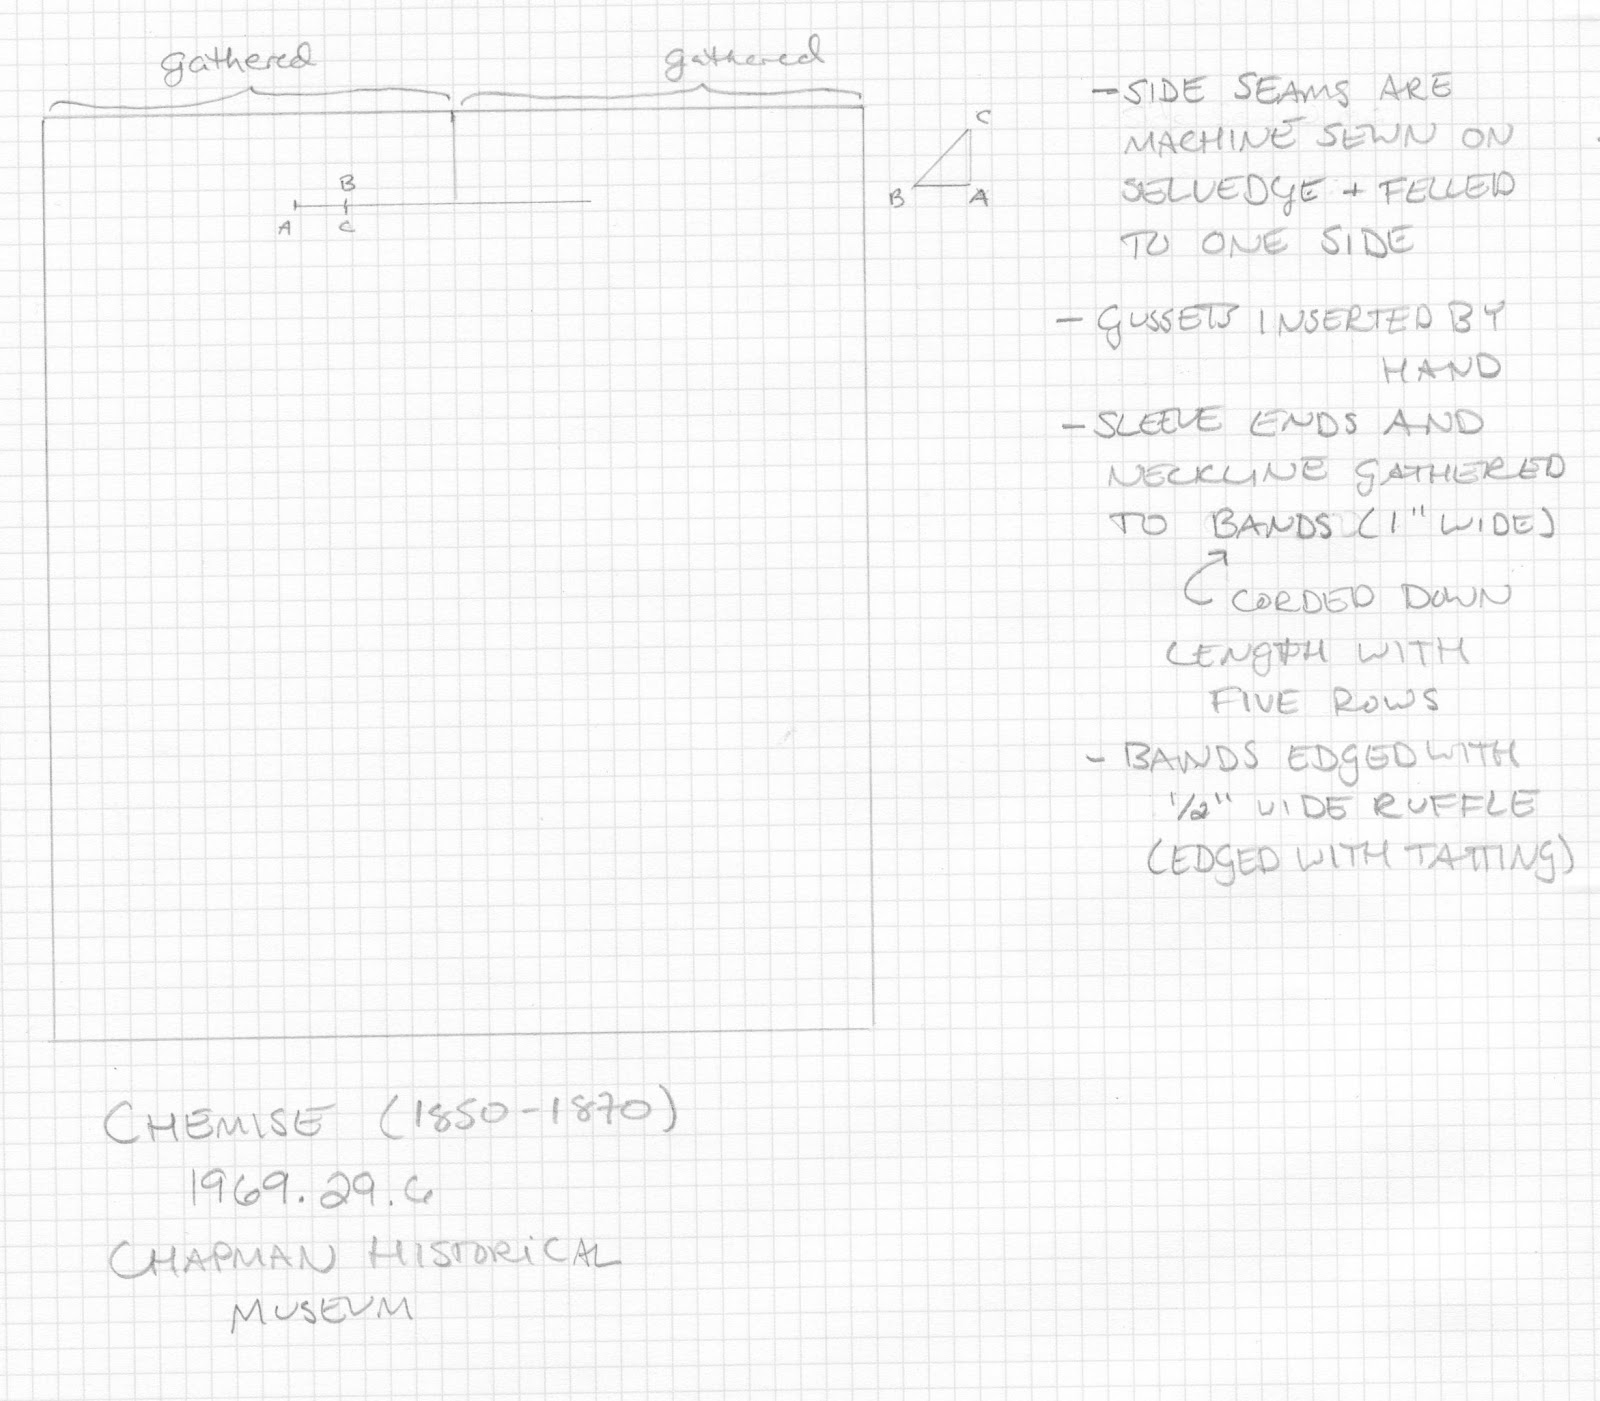 gathered gathered
B
A C
C
B A
- SIDE SEAMS ARE
MACHINE SEWN ON
SELVEDGE + FELLED
TO ONE SIDE
- GUSSETS INSERTED BY
HAND
- SLEEVE ENDS AND
NECKLINE GATHERED
TO BANDS (1" WIDE)
CORDED DOWN
LENGTH WITH
FIVE ROWS
- BANDS EDGED WITH
1/2" WIDE RUFFLE
(EDGED WITH TATTING)
CHEMISE (1850-1870)
1969.29.6
CHAPMAN HISTORICAL
MUSEUM